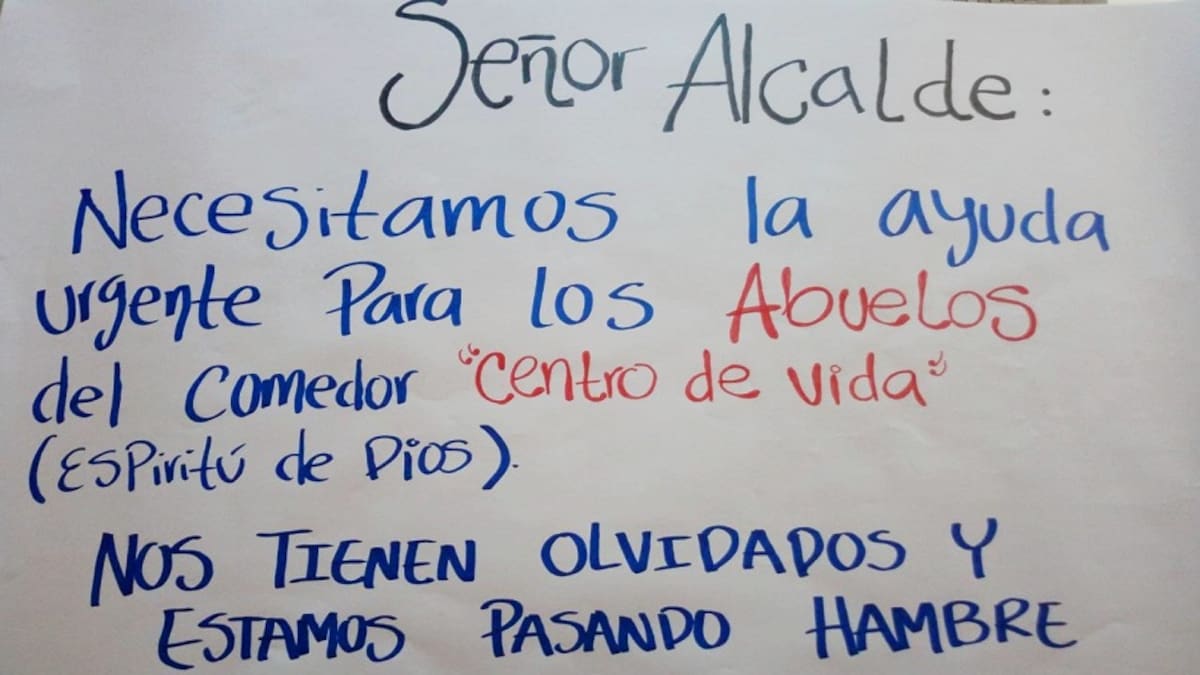 Señor Alcalde:
Necesitamos la ayuda
urgente Para los Abuelos
del Comedor "Centro de vida"
(ESPiritú de Dios).
NOS TIENEN OLVIDADOS Y
ESTAMOS PASANDO HAMBRE